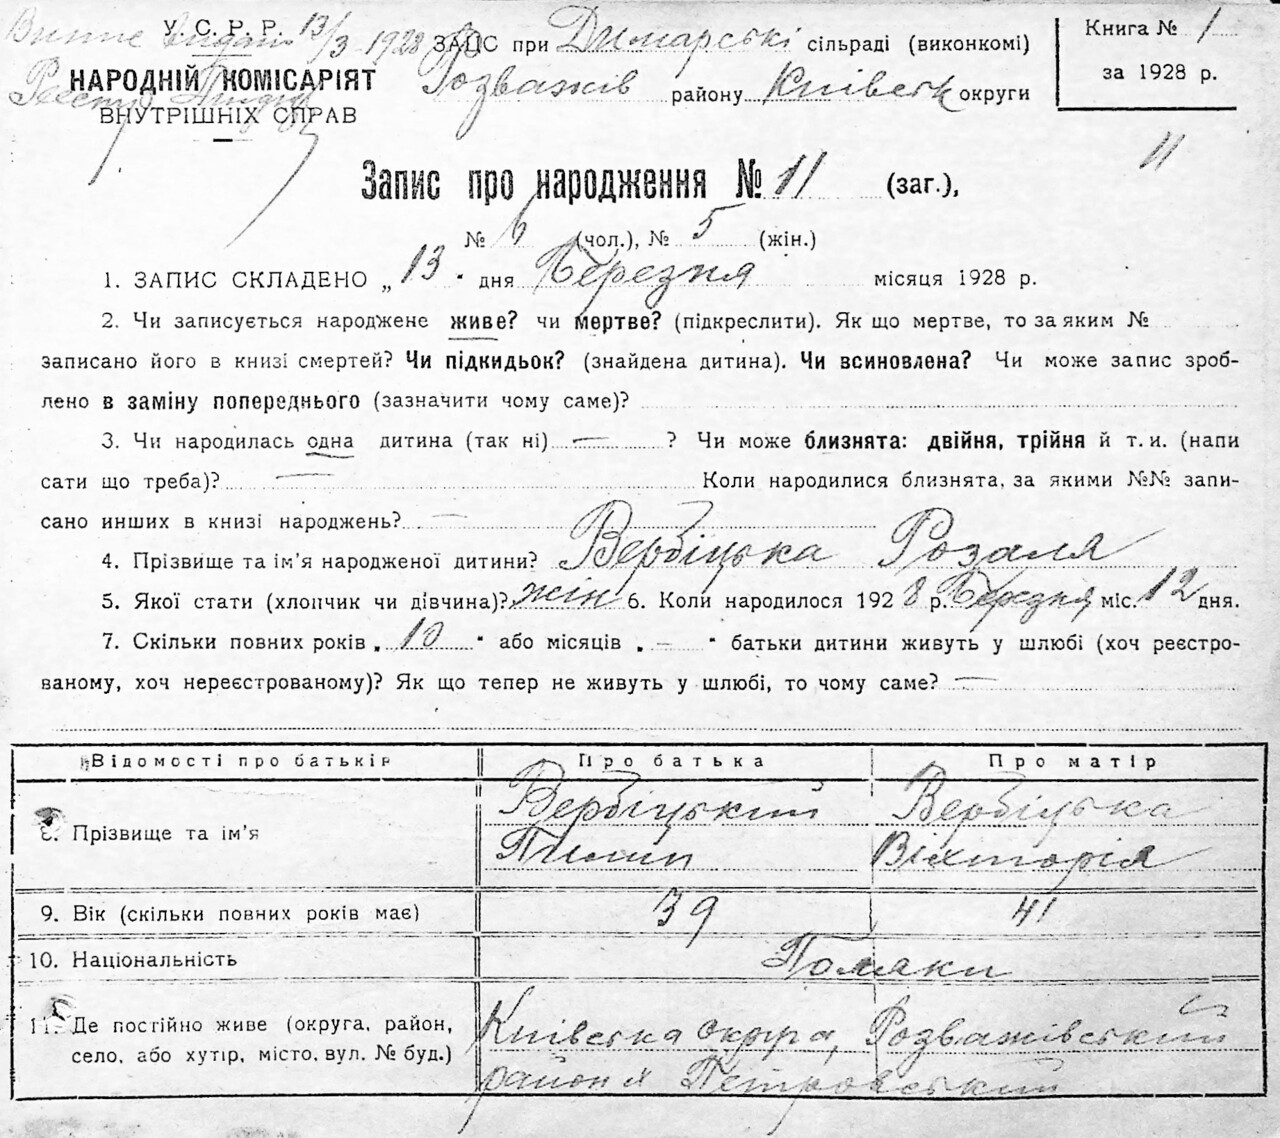 Випис видан 13/3 1928 р
У. С. Р. Р.
НАРОДНІЙ КОМІСАРІЯТ
ВНУТРІШНІХ СПРАВ
ЗАЦС при Димарські сільраді (виконкомі)
Розважів району Київськ округи
Книга № 1
за 1928 р.
11
Запис про народження № 11 (заг.),
№ 6 (чол.), № 5 (жін.)
1. ЗАПИС СКЛАДЕНО „ 13 " дня Березня місяця 1928 р.
2. Чи записується народжене живе? чи мертве? (підкреслити). Як що мертве, то за яким №
записано його в книзі смертей? Чи підкидьок? (знайдена дитина). Чи всиновлена? Чи може запис зроб-
лено в заміну попереднього (зазначити чому саме)?
3. Чи народилась одна дитина (так ні) — ? Чи може близнята: двійня, трійня й т. и. (напи
сати що треба)? — Коли народилися близнята, за якими №№ запи-
сано инших в книзі народжень? —
4. Прізвище та ім'я народженої дитини? Вербіцька Розаля
5. Якої стати (хлопчик чи дівчина)? жін 6. Коли народилося 1928 р. Березня міс. 12 дня.
7. Скільки повних років „ 10 " або місяців „ — " батьки дитини живуть у шлюбі (хоч реєстро-
ваному, хоч нереєстрованому)? Як що тепер не живуть у шлюбі, то чому саме? —
Відомості про батьків Про батька Про матір
8. Прізвище та ім'я Вербіцький Вербіцька
Пилип Вікторія
9. Вік (скільки повних років має) 39 41
10. Національність Поляки
11. Де постійно живе (округа, район, Київська округа, Розважівський
село, або хутір, місто, вул. № буд.) район Петровський